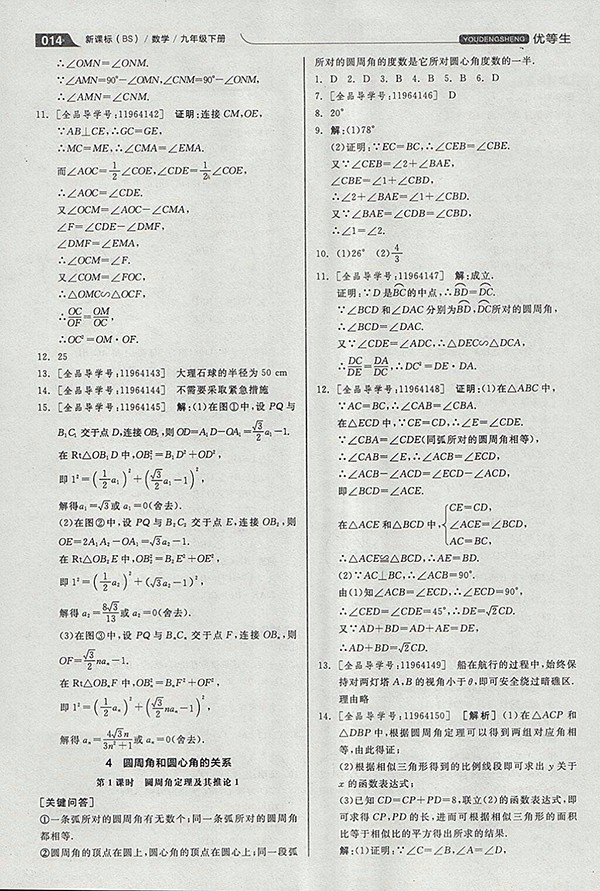 014 新课标(BS)/数学/九年级下册
YOUDENGSHENG 优等生
∴∠OMN=∠ONM.
∵∠AMN=90°-∠OMN,∠CNM=90°-∠ONM,
∴∠AMN=∠CNM.
11. [全品导学号:11964142] 证明:连接CM,OE,
∵AB⊥CE,∴GC=GE,
∴MC=ME,∴∠CMA=∠EMA.
而∠AOC=1/2∠COE,∠CDE=1/2∠COE,
∴∠AOC=∠CDE.
又∠OCM=∠AOC-∠CMA,
∠F=∠CDE-∠DMF,
∠DMF=∠EMA,
∴∠OCM=∠F.
又∠COM=∠FOC,
∴△OMC∽△OCF,
∴OC/OF=OM/OC,
∴OC²=OM·OF.
12. 25
13. [全品导学号:11964143] 大理石球的半径为50 cm
14. [全品导学号:11964144] 不需要采取紧急措施
15. [全品导学号:11964145] 解:(1)在图①中,设PQ与
B₁C₁交于点D,连接OB₁,则OD=A₁D-OA₁=√3/2a₁-1.
在Rt△OB₁D中,OB₁²=B₁D²+OD²,
即1²=(1/2a₁)²+(√3/2a₁-1)²,
解得a₁=√3或a₁=0(舍去).
(2)在图②中,设PQ与B₂C₂交于点E,连接OB₂,则
OE=2A₁A₂-OA₁=√3a₂-1.
在Rt△OB₂E中,OB₂²=B₂E²+OE²,
即1²=(1/2a₂)²+(√3a₂-1)²,
解得a₂=8√3/13或a₂=0(舍去).
(3)在图③中,设PQ与BₙCₙ交于点F,连接OBₙ,则
OF=√3/2naₙ-1.
在Rt△OBₙF中,OBₙ²=BₙF²+OF²,
即1²=(1/2aₙ)²+(√3/2naₙ-1)²,
解得aₙ=4√3n/3n²+1或aₙ=0(舍去).
4 圆周角和圆心角的关系
第1课时 圆周角定理及其推论1
[关键问答]
①一条弧所对的圆周角有无数个;同一条弧所对的圆周角
都相等.
②圆周角的顶点在圆上,圆心角的顶点在圆心上;同一段弧
所对的圆周角的度数是它所对圆心角度数的一半.
1. D 2. D 3. B 4. B 5. B 6. D
7. [全品导学号:11964146] D
8. 20°
9. 解:(1)78°
(2)证明:∵EC=BC,∴∠CEB=∠CBE.
又∵∠CEB=∠2+∠BAE,
∠CBE=∠1+∠CBD,
∴∠2+∠BAE=∠1+∠CBD.
又∵∠BAE=∠CDB=∠CBD,
∴∠1=∠2.
10. (1)26° (2)4/3
11. [全品导学号:11964147] 解:成立.
证明:∵D是BC的中点,∴BD=DC.
∵∠BCD和∠DAC分别为BD,DC所对的圆周角,
∴∠BCD=∠DAC.
又∵∠CDE=∠ADC,∴△DEC∽△DCA,
∴DC/DE=DA/DC,∴DC²=DE·DA.
12. [全品导学号:11964148] 证明:(1)在△ABC中,
∵AC=BC,∴∠CAB=∠CBA.
在△ECD中,∵CE=CD,∴∠E=∠CDE.
∵∠CBA=∠CDE(同弧所对的圆周角相等),
∴∠CAB=∠E,∴∠ACB=∠ECD,
∴∠ACB-∠ACD=∠ECD-∠ACD,
即∠BCD=∠ACE.
在△ACE和△BCD中,{CE=CD,
∠ACE=∠BCD,
AC=BC,
∴△ACE≌△BCD,∴AE=BD.
(2)∵AC⊥BC,∴∠ACB=90°.
由(1)知∠ACB=∠ECD,∴∠ECD=90°,
∴∠CED=∠CDE=45°,∴DE=√2CD.
又∵AD+BD=AD+AE=DE,
∴AD+BD=√2CD.
13. [全品导学号:11964149] 船在航行的过程中,始终保
持对两灯塔A,B的视角小于θ,即可安全绕过暗礁区.
理由略
14. [全品导学号:11964150] [解析] (1)在△ACP和
△DBP中,根据圆周角定理可以得到两组对应角相
等,由此得证;
(2)根据相似三角形得到的比例线段即可求出y关于
x的函数表达式;
(3)已知CD=CP+PD=8,联立(2)的函数表达式,即
可求得CP,PD的长,进而可根据相似三角形的面积
比等于相似比的平方得出所求的结果.
解:(1)证明:∵∠C=∠B,∠A=∠D,